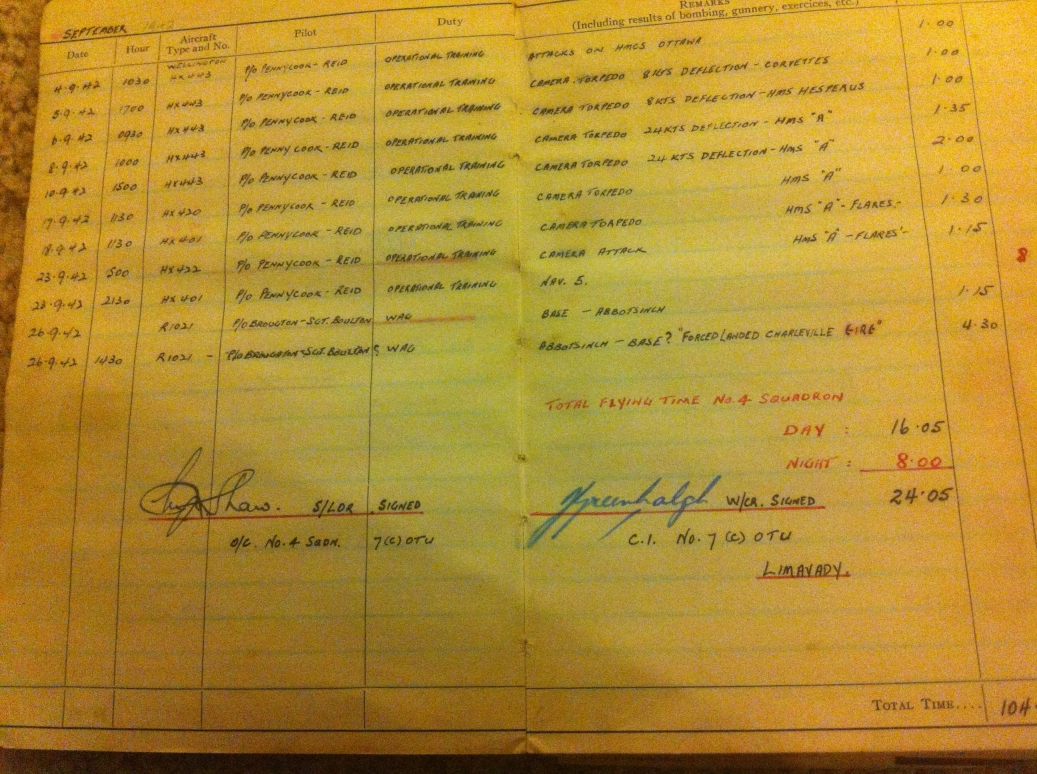 SEPTEMBER 1942
Date Hour Aircraft Type and No. Pilot Duty REMARKS
(Including results of bombing, gunnery, exercises, etc.)
WELLINGTON
4.9.42 1030 HX443 P/O PENNYCOOK-REID OPERATIONAL TRAINING ATTACKS ON HMCS OTTAWA 1.00
5.9.42 1700 HX443 P/O PENNYCOOK-REID OPERATIONAL TRAINING CAMERA TORPEDO 8KTS DEFLECTION - CORVETTES 1.00
6.9.42 0930 HX443 P/O PENNYCOOK-REID OPERATIONAL TRAINING CAMERA TORPEDO 8KTS DEFLECTION-HMS HESPERUS 1.00
8.9.42 1000 HX443 P/O PENNYCOOK-REID OPERATIONAL TRAINING CAMERA TORPEDO 24KTS DEFLECTION - HMS "A" 1.35
10.9.42 1500 HX443 P/O PENNYCOOK-REID OPERATIONAL TRAINING CAMERA TORPEDO 24 KTS DEFLECTION-HMS "A" 2.00
17.9.42 1130 HX420 P/O PENNYCOOK-REID OPERATIONAL TRAINING CAMERA TORPEDO HMS "A" 1.00
18.9.42 1130 HX401 P/O PENNYCOOK-REID OPERATIONAL TRAINING CAMERA TORPEDO HMS "A"-FLARES- 1.30
23.9.42 500 HX422 P/O PENNYCOOK-REID OPERATIONAL TRAINING CAMERA ATTACK HMS "A" -FLARES- 1.15
23.9.42 2130 HX401 P/O PENNYCOOK-REID OPERATIONAL TRAINING NAV. 5. 8
26.9.42 R1021 P/O BROUGTON-SGT.BOULTON WAG BASE - ABBOTSINCH 1.15
26.9.42 1430 R1021 - P/O BROUGTON-SGT.BOULTON WAG ABBOTSINCH - BASE? "FORCED LANDED CHARLEVILLE EIRE" 4.30
TOTAL FLYING TIME No.4 SQUADRON
DAY : 16.05
NIGHT : 8.00
24.05
Shaw. S/LDR SIGNED Greenhalgh W/CR. SIGNED
O/C. No.4 SQDN. 7(C) OTU C.I. No.7 (C) OTU
LIMAVADY.
TOTAL TIME.... 104